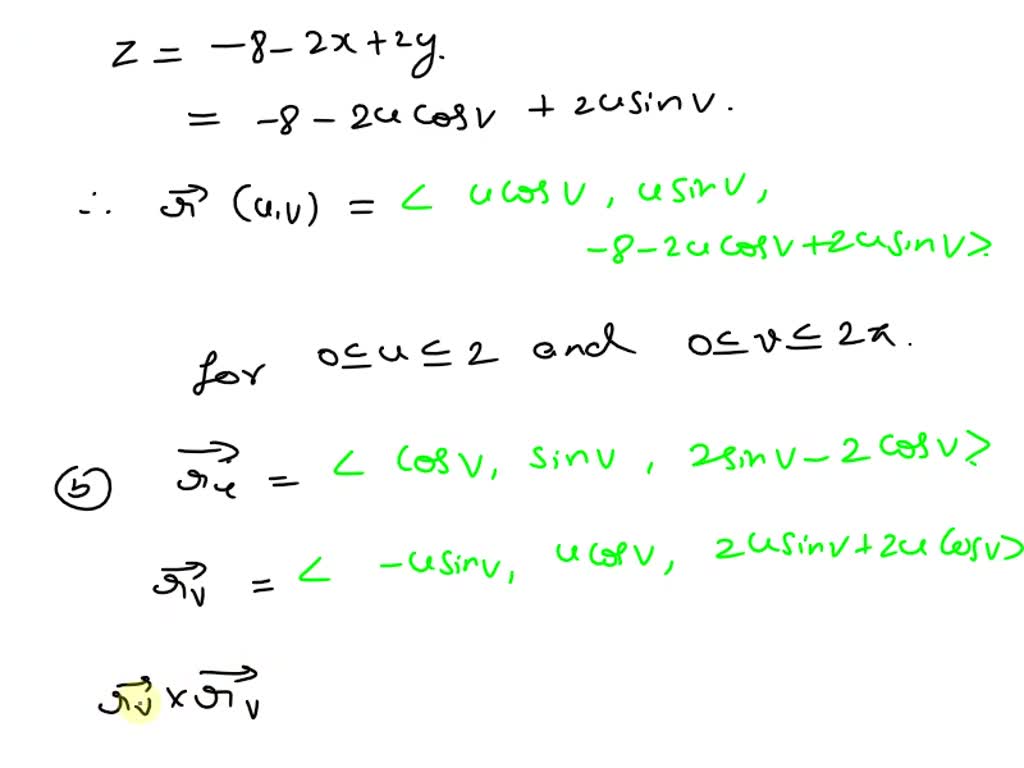 z = -8-2x+2y.
= -8-2u cosv + 2usinv.
∴ r⃗ (u,v) = < ucosv, usinv,
-8-2ucosv+2usinv>.
for 0≤u≤2 and 0≤v≤2π.
(b) r⃗u = < cosv, sinv, 2sinv-2cosv>
r⃗v = < -usinv, ucosv, 2usinv+2ucosv>
r⃗u × r⃗v